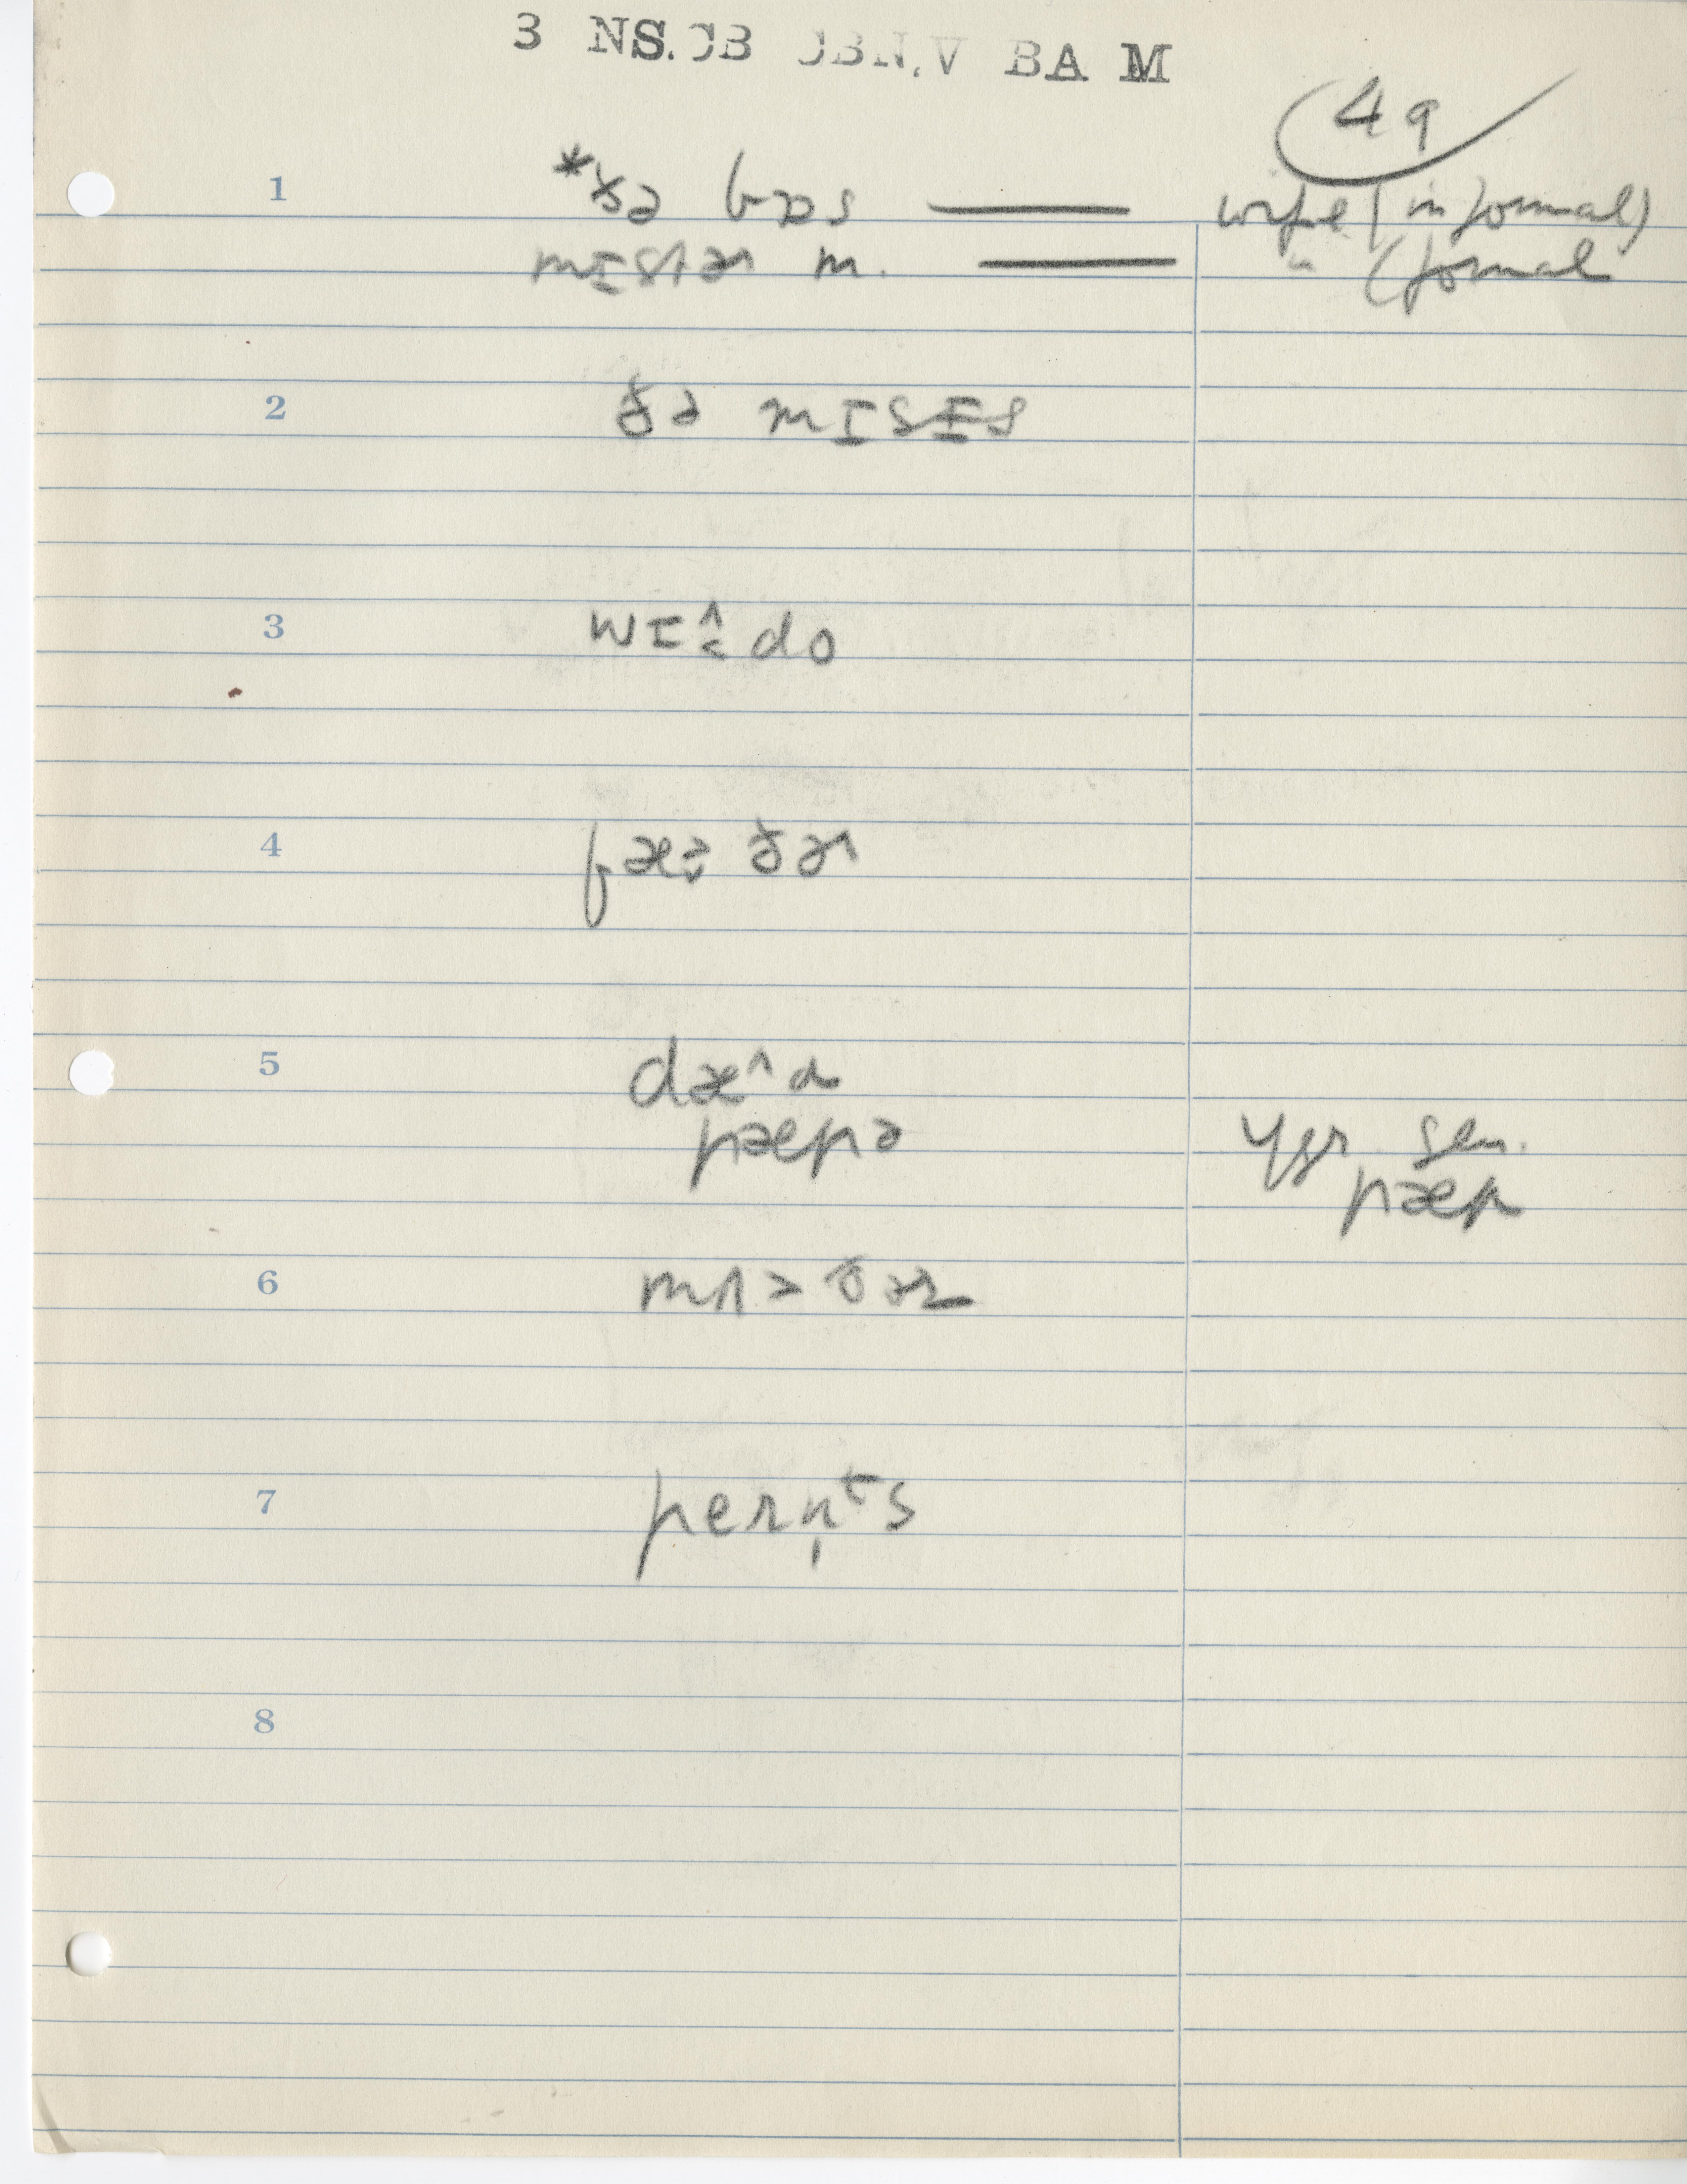 3 NS.CB CBN.V BA M
49
1 *ðə bɔs — wife (informal)
mɪstər m. — " (formal
2 ðə mɪsɪs
3 wɪ do
4 fæə ðər
5 dæ^d
pæpə ygr sen.
pæp
6 mʌ > ðər
7 pern̩ᵗs
8